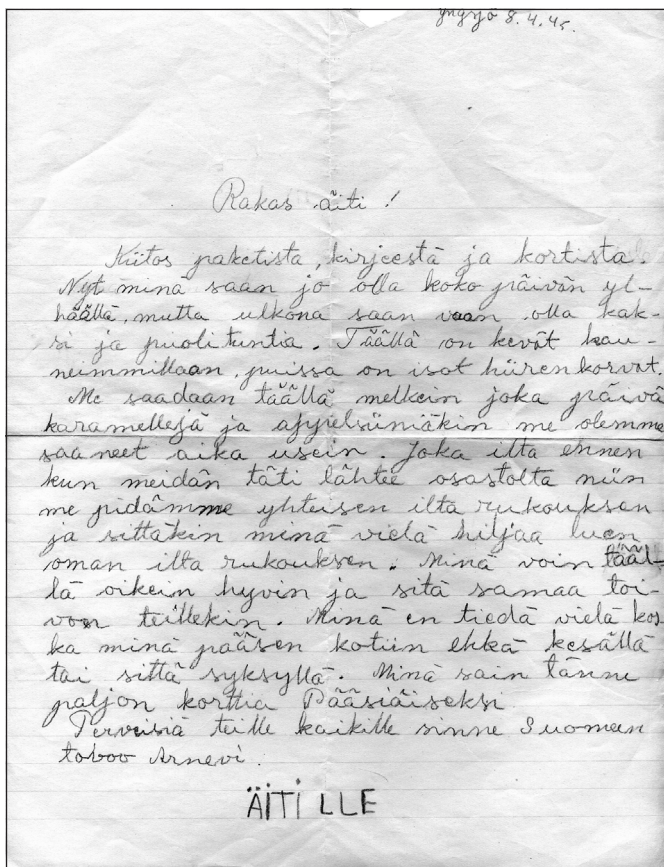 yngsjö 8.4.45.
Rakas äiti!
Kiitos paketista, kirjeestä ja kortista.
Nyt minä saan jo olla koko päivän yl-
häällä, mutta ulkona saan vaan olla kak-
si ja puolituntia. Täällä on kevät kau-
neimmillaan, puissa on isot hiirenkorvat.
Me saadaan täällä melkein joka päivä
karamellejä ja apyelsiiniäkin me olemme
saaneet aika usein. Joka ilta ennen
kun meidän täti lähtee osastolta niin
me pidämme yhteisen ilta rukouksen
ja sittäkin minä vielä hiljaa luen
oman ilta rukouksen. Minä voin tääl-
lä oikein hyvin ja sitä samaa toi-
von teillekin. Minä en tiedä vielä kos-
ka minä pääsen kotiin ehkä kesällä
tai sittä syksyllä. Minä sain tänne
paljon korttia Pääsiäiseksi
Terveisiä teille kaikille sinne Suomeen
toivoo Arnevi.
ÄITI LLE